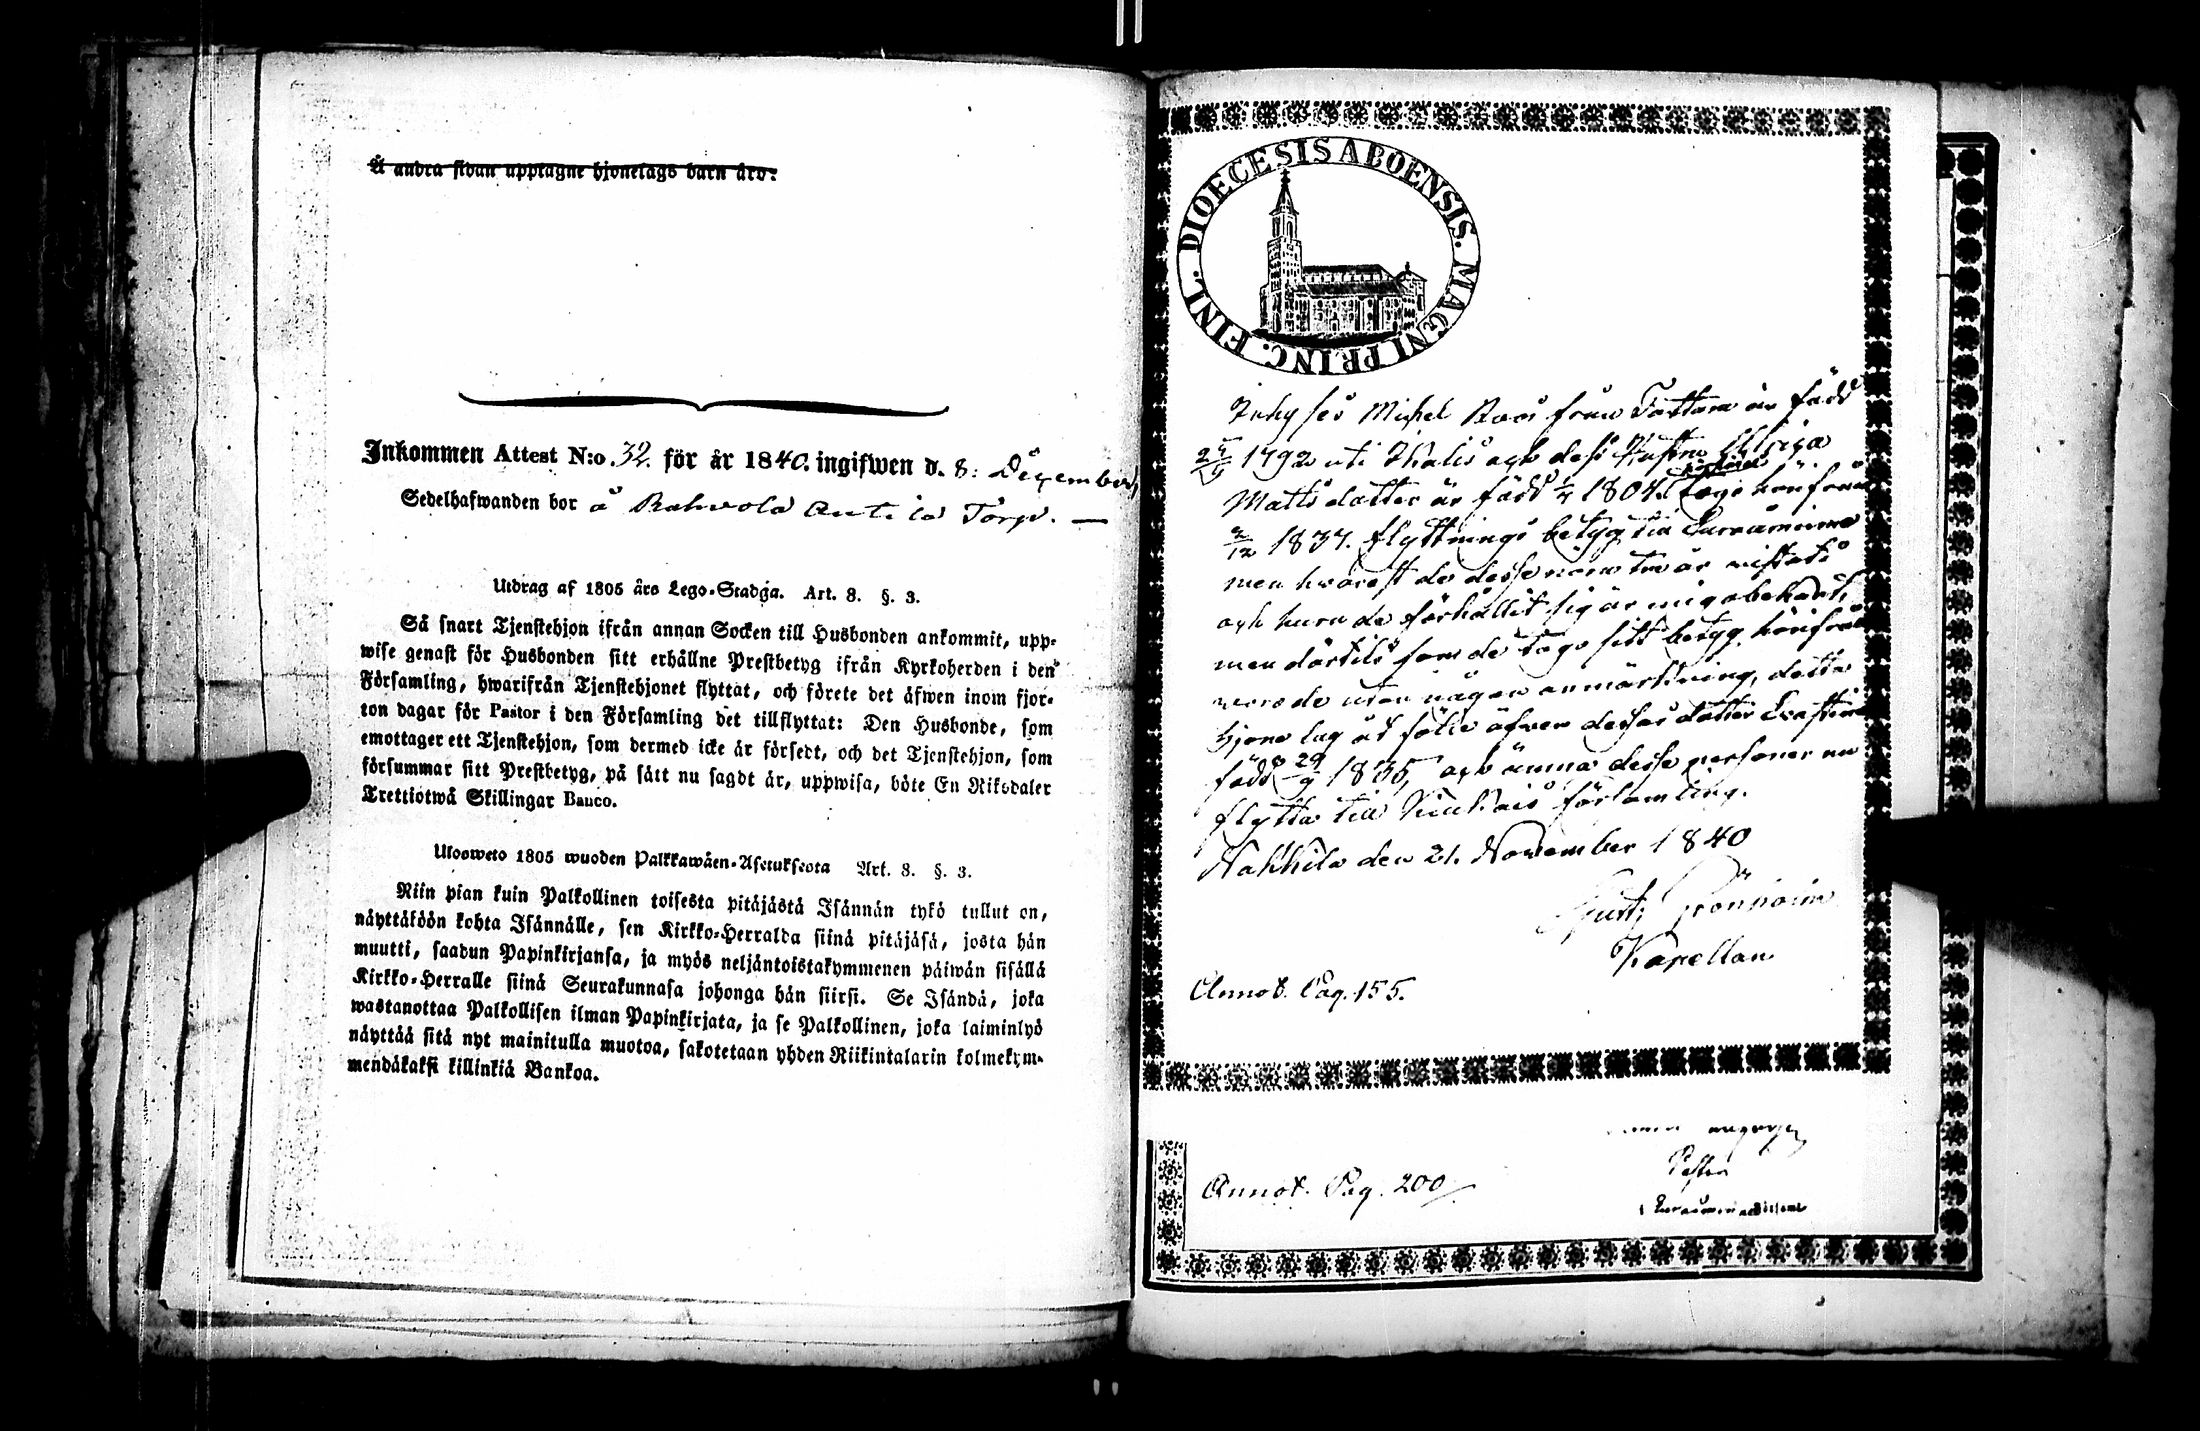 Å andra sidan upptagne hjonelags barn äro:
Inkommen Attest N:o 32. för år 1840. ingifwen d. 8: December
Sedelhafwanden bor å Rahvola Antila Torp. —
Utdrag af 1805 års Lego-Stadga. Art. 8. §. 3.
Så snart Tjenstehjon ifrån annan Socken till Husbonden ankommit, upp-
wise genast för Husbonden sitt erhållne Prestbetyg ifrån Kyrkoherden i den
Församling, hwarifrån Tjenstehjonet flyttat, och förete det äfwen inom fjor-
ton dagar för Pastor i den Församling det tillflyttat: Den Husbonde, som
emottager ett Tjenstehjon, som dermed icke är försedt, och det Tjenstehjon, som
försummar sitt Prestbetyg, på sätt nu sagdt är, uppwisa, böte En Riksdaler
Trettiotwå Skillingar Banco.
Ulosweto 1805 wuoden Palkkawäen-Asetuksesta Art. 8. §. 3.
Niin pian kuin Palkollinen toisesta pitäjästä Isännän tykö tullut on,
näyttäköön kohta Isännälle, sen Kirkko-Herralda siinä pitäjäsä, josta hän
muutti, saadun Papinkirjansa, ja myös neljäntoistakymmenen päiwän sisällä
Kirkko-Herralle siinä Seurakunnasa johonga hän siirsi. Se Isändä, joka
wastanottaa Palkollisen ilman Papinkirjata, ja se Palkollinen, joka laiminlyö
näyttää sitä nyt mainitulla muotoa, sakotetaan yhden Riikintalarin kolmekym-
mendäkaksi killinkiä Bankoa.
DIOECESIS ABOENSIS. MAGNI PRINC. FINL.
Inhyses Michel Roos från Tattara är född
1792 uti Ikalis och dess Hustru Ulrica
Matts dotter är född 1804. togo härifrån
2/12 1837. flyttnings betyg till Euraåminne
men hvarest de desse nära tre år vistats
och huru de förhållit sig är mig obekant,
men därtils som de togo sitt betyg härifrån
voro de utan någon anmärkning, detta
hjonelag åtföljer äfven desses dotter
född 29/9 1835, och ämna desse personer nu
flytta till Kiukais församling.
Nakkila den 21. November 1840
Gust: Grönholm
Kapellan
Annot. Pag. 155.
Pastor
Annot. Pag. 200